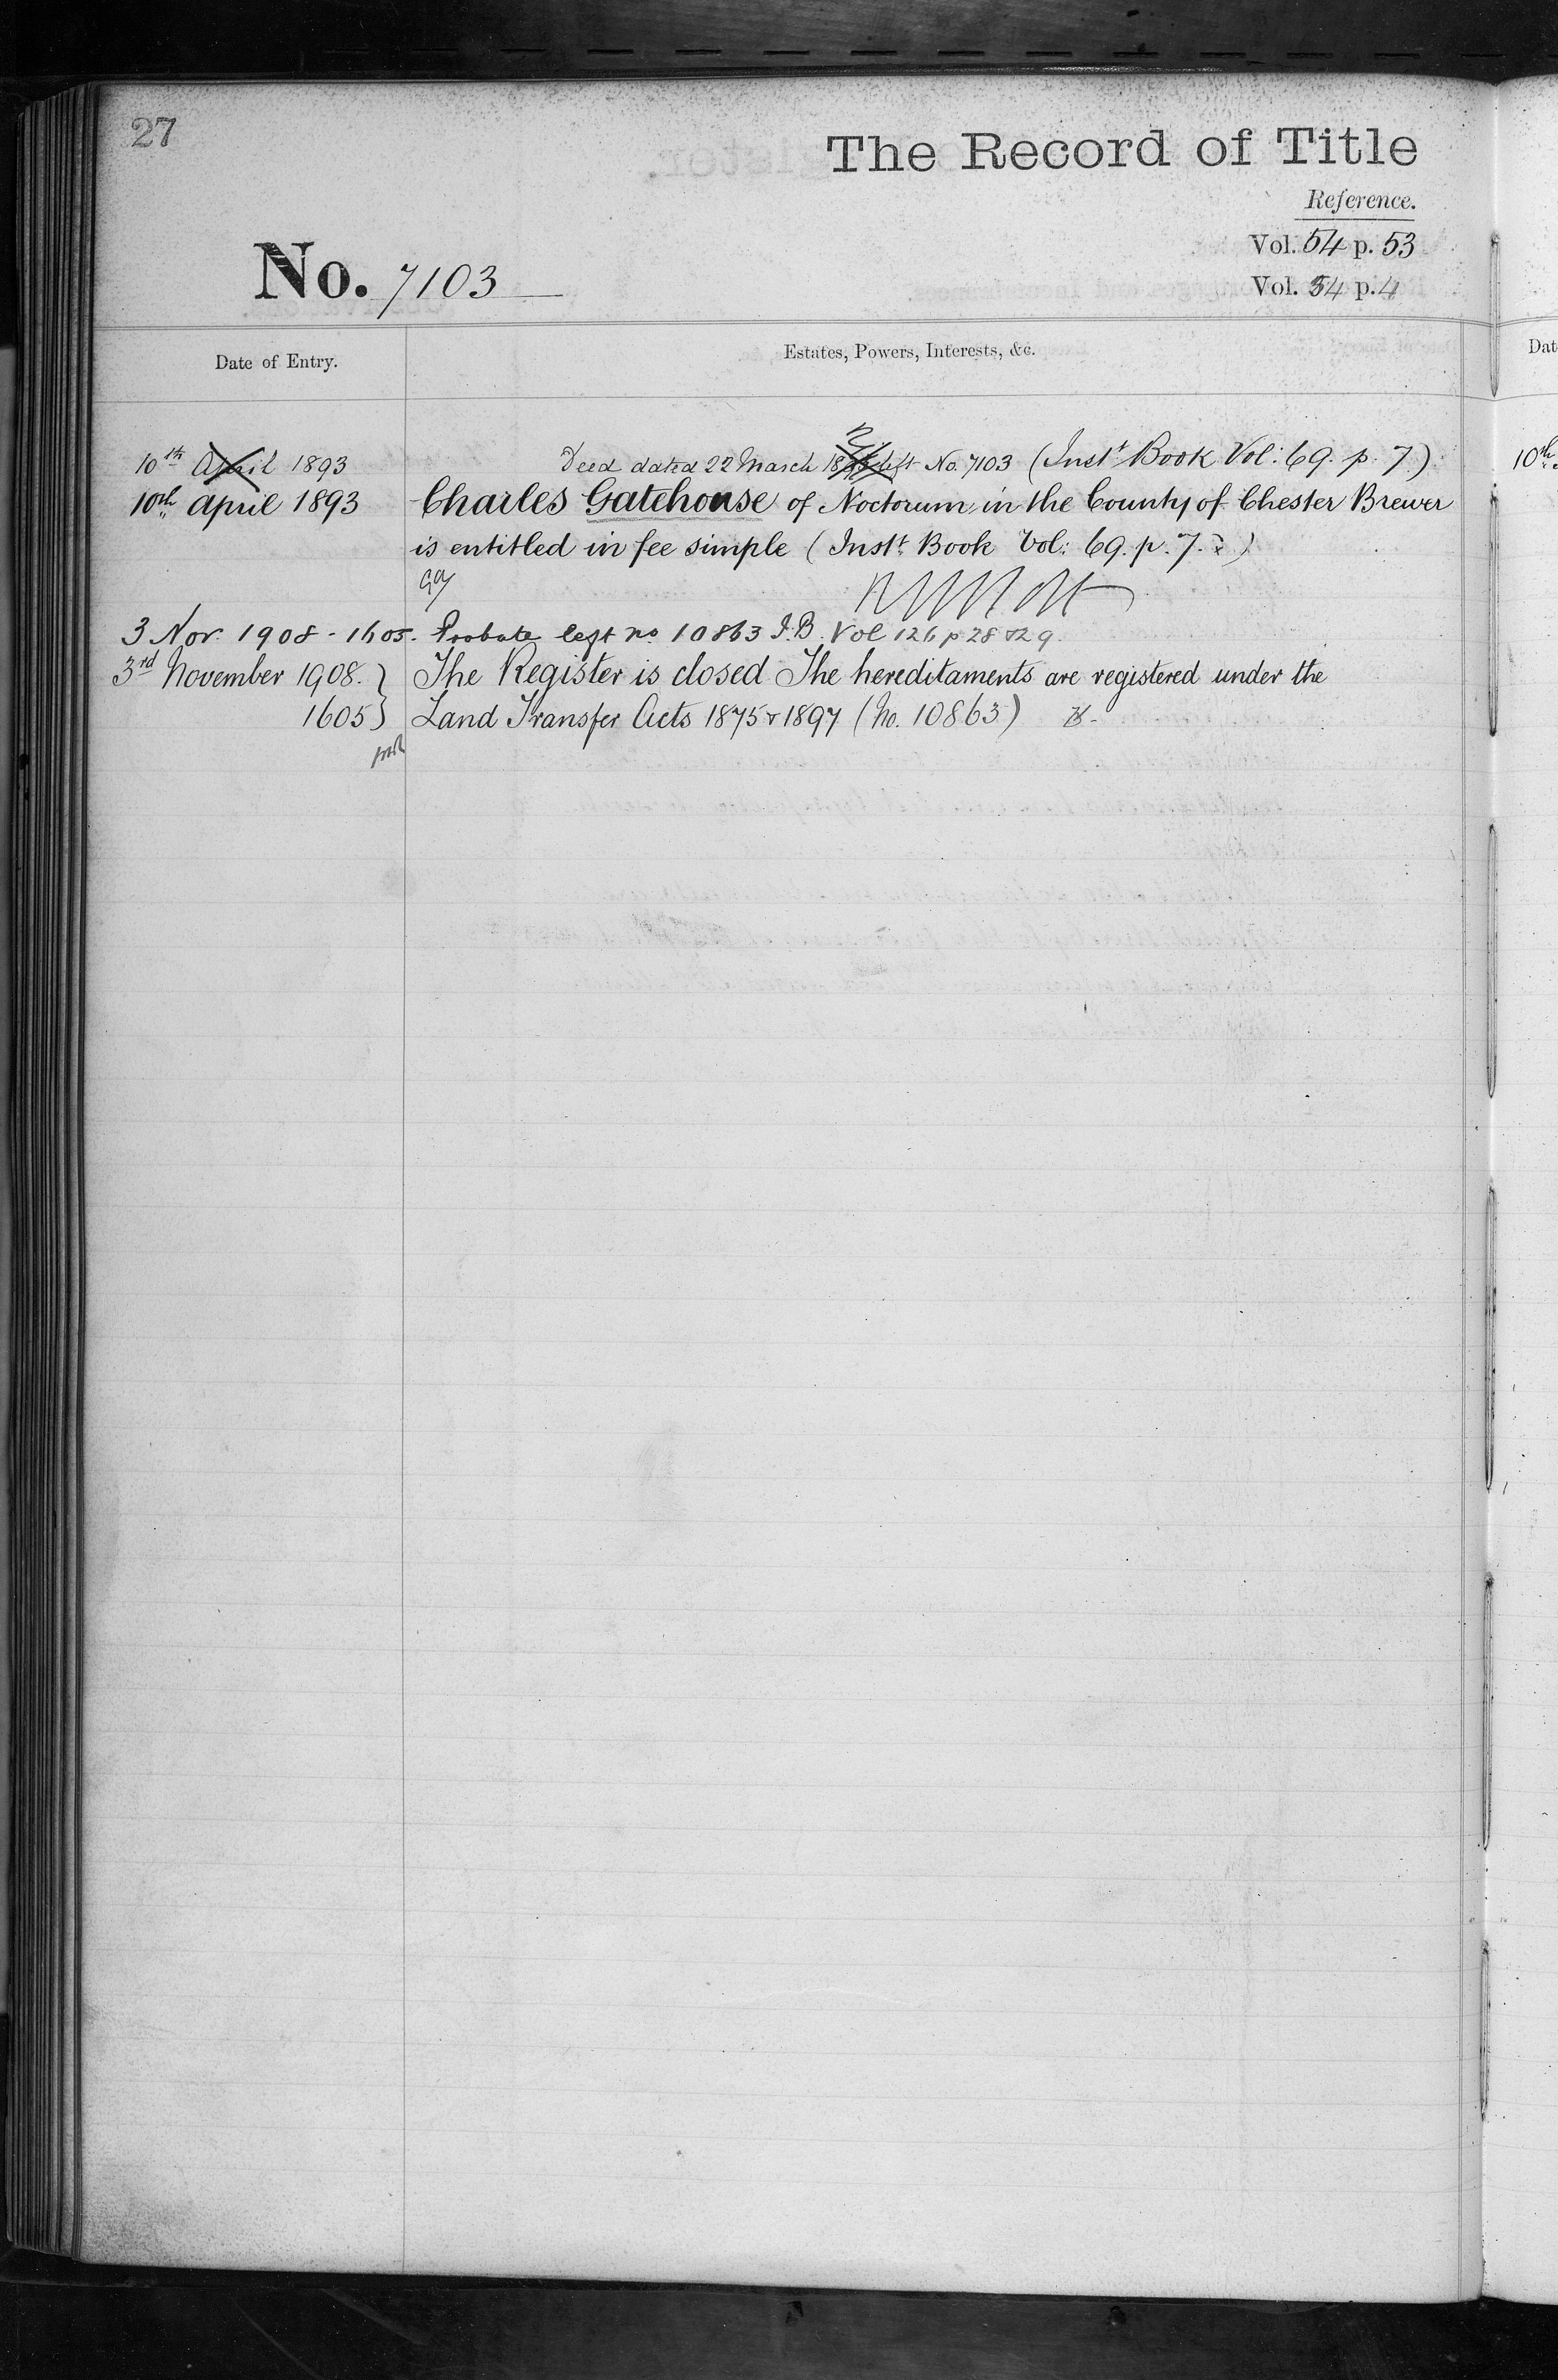 27
The Record of Title
Reference.
Vol. 54 p. 53
No. 7103
Vol. 54 p. 4
Date of Entry.
Estates, Powers, Interests, &c.
Dat
10th April 1893 Deed dated 22 March left No. 7103 (Inst.t Book Vol: 69. p. 7)
10th
10th April 1893 Charles Gatehouse of Noctorum, in the County of Chester Brewer
is entitled in fee simple (Inst.t Book Vol: 69. p. 7.)
3 Nov. 1908 - 1605. Probate left no 10863 I.B. Vol 126 p 28 & 29.
3rd November 1908. } The Register is closed The hereditaments are registered under the
1605 } Land Transfer Acts 1875 & 1897 (No. 10863)